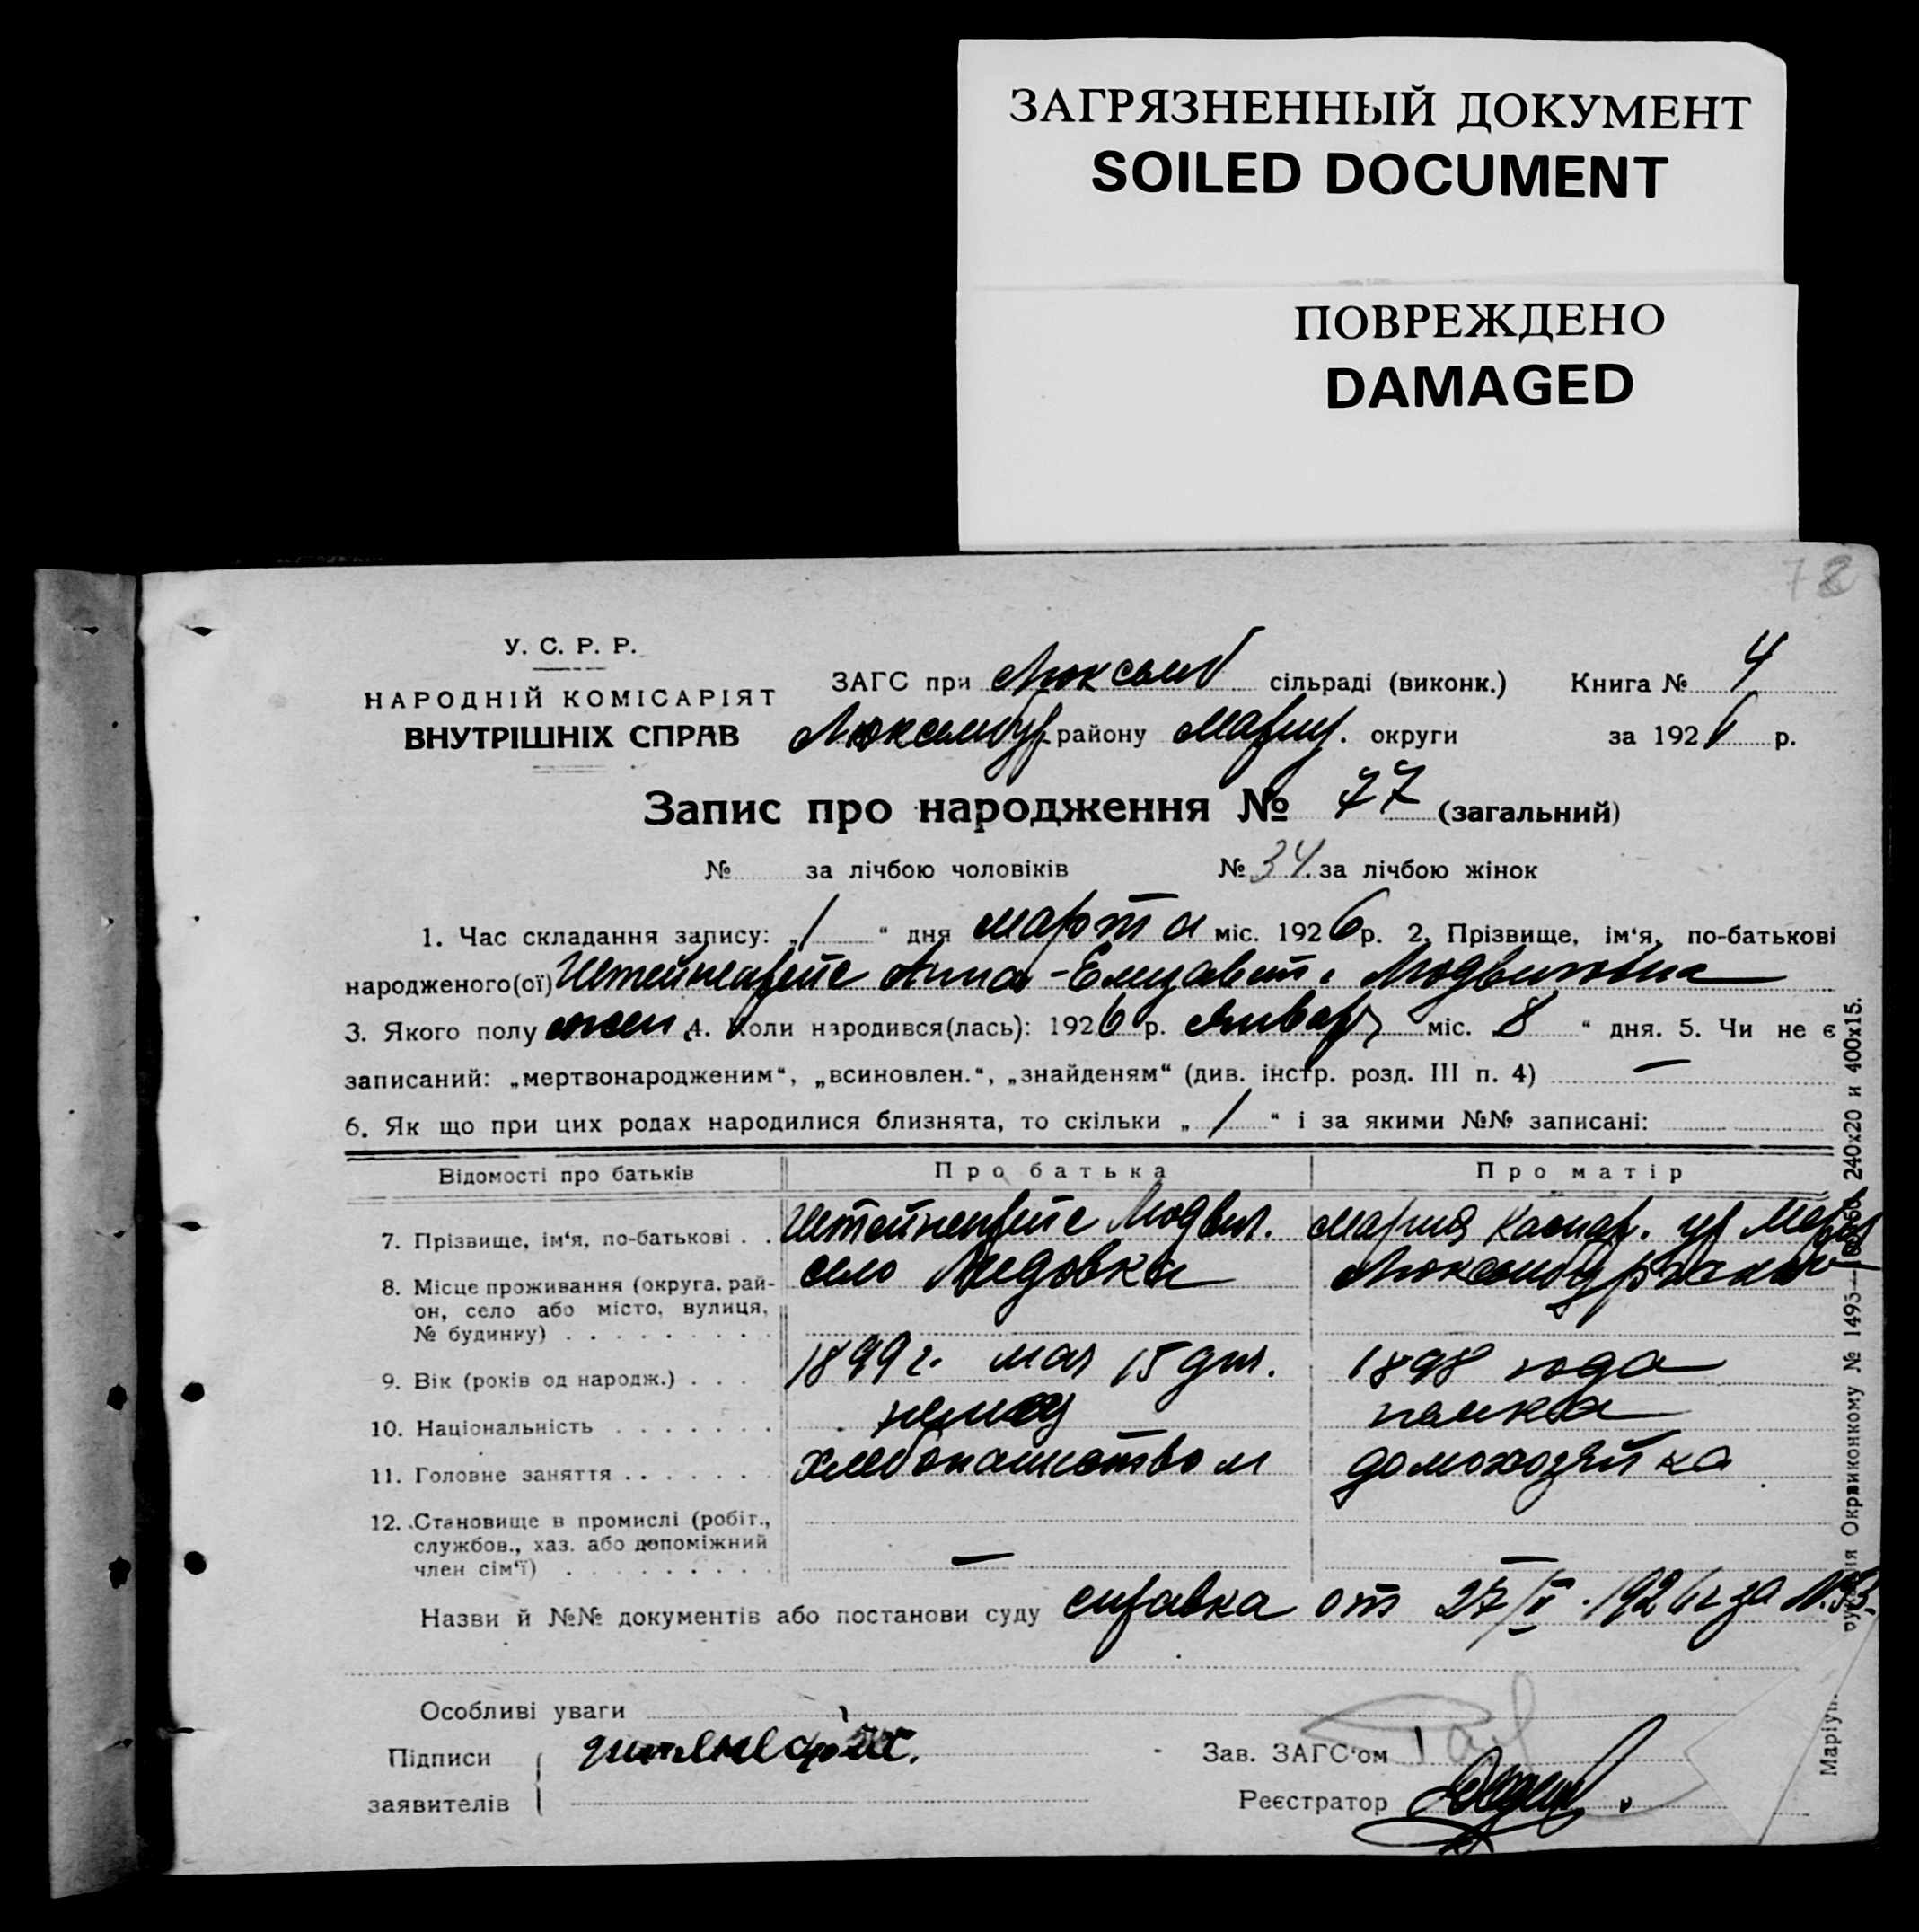 ЗАГРЯЗНЕННЫЙ ДОКУМЕНТ
SOILED DOCUMENT
ПОВРЕЖДЕНО
DAMAGED
78
У. С. Р. Р.
НАРОДНІЙ КОМІСАРІЯТ
ВНУТРІШНІХ СПРАВ
ЗАГС при Люксемб сільраді (виконк.) Книга № 4
Люксембур. району Мариу. округи за 1926 р.
Запис про народження № 77 (загальний)
№ за лічбою чоловіків № 34. за лічбою жінок
1. Час складання запису: „1“ дня марта міс. 1926 р. 2. Прізвище, ім‘я, по-батькові
народженого(ої) Анна-Елизавет.
3. Якого полу жен. 4. Коли народився(лась): 1926 р. январ міс. 8 “ дня. 5. Чи не є
записаний: „мертвонародженим“, „всиновлен.“, „знайденям“ (див. інстр. розд. III п. 4) —
6. Як що при цих родах народилися близнята, то скільки „ 1 “ і за якими №№ записані:
Відомості про батьків Про батька Про матір
7. Прізвище, ім‘я, по-батькові . . Людвиг. Мария Каспар.
8. Місце проживання (округа, рай-
он, село або місто, вулиця,
№ будинку) село
9. Вік (років од народж.) . . . 1899 г. мая 15 дня. 1898 года
10. Національність немец немка
11. Головне заняття хлебопашеством домохозяйка
12. Становище в промислі (робіт.,
службов., хаз. або допоміжний
член сім‘ї) —
Назви й №№ документів або постанови суду справка от 27/II. 1926 г за №
Особливі уваги
Підписи
заявителів
Зав. ЗАГС‘ом
Реєстратор
Окрвиконкому № 1495 240х20 и 400х15.